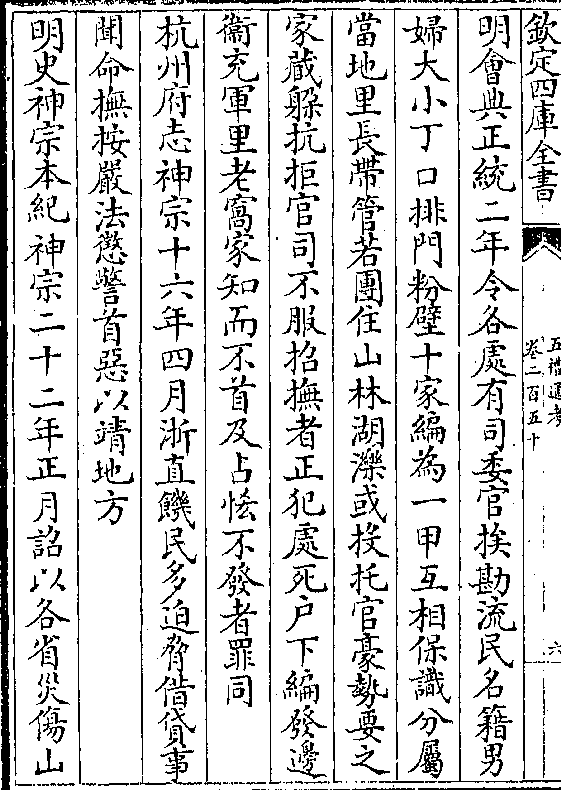 欽定四庫全書
五禮通考
卷二百五十
六
明會典正統二年令各處有司委官挨勘流民名籍男
婦大小丁口排門粉壁十家編為一甲互相保識分屬
當地里長帶管若團住山林湖濼或投托官豪勢要之
家藏躱抗拒官司不服招撫者正犯處死户下編發邊
衛充軍里老窩家知而不首及占恡不發者罪同
杭州府志神宗十六年四月浙直饑民多迫脅借貸事
聞命撫按嚴法懲警首惡以靖地方
明史神宗本紀神宗二十二年正月詔以各省災傷山